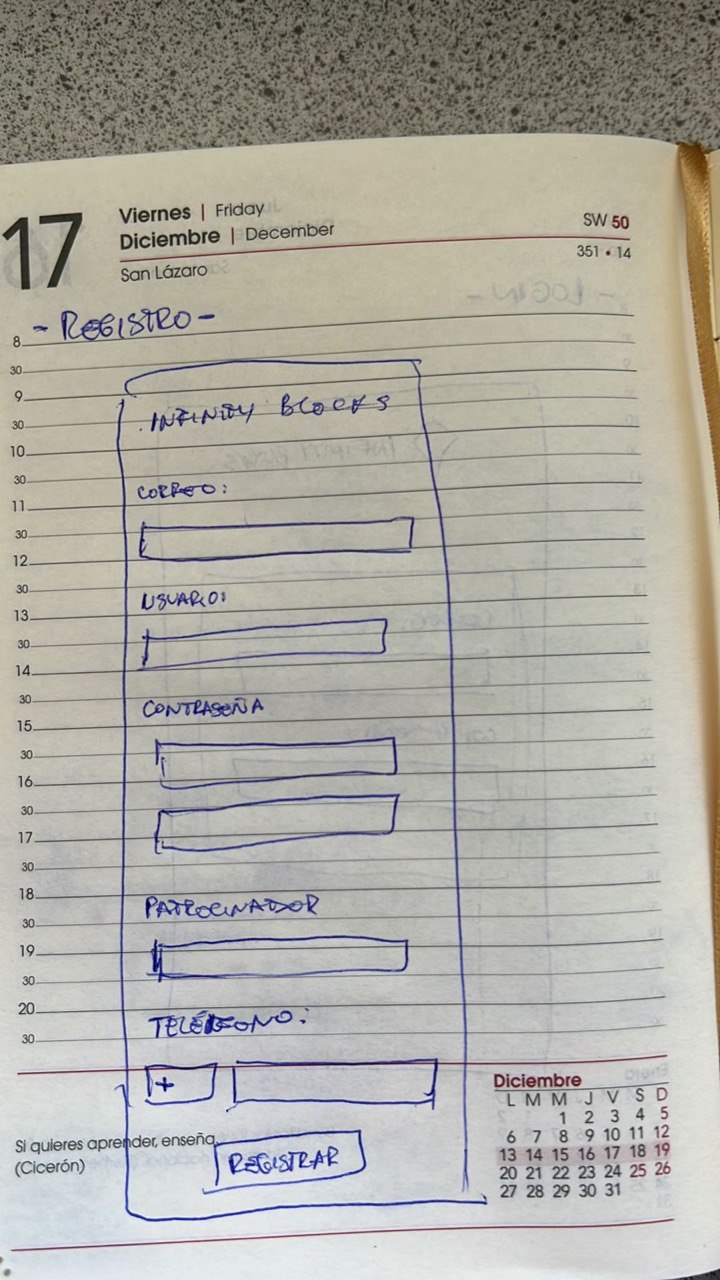 17
Viernes | Friday
Diciembre | December
San Lázaro
SW 50
351 • 14
- LOGIN -
- REGISTRO -
8
30
9
30
10
30
11
30
12
30
13
30
14
30
15
30
16
30
17
30
18
30
19
30
20
30
INFINITY BLOCKS
CORREO:
USUARIO:
CONTRASEÑA
PATROCINADOR
TELÉFONO:
+
REGISTRAR
Si quieres aprender, enseña.
(Cicerón)
Diciembre
L M M J V S D
1 2 3 4 5
6 7 8 9 10 11 12
13 14 15 16 17 18 19
20 21 22 23 24 25 26
27 28 29 30 31